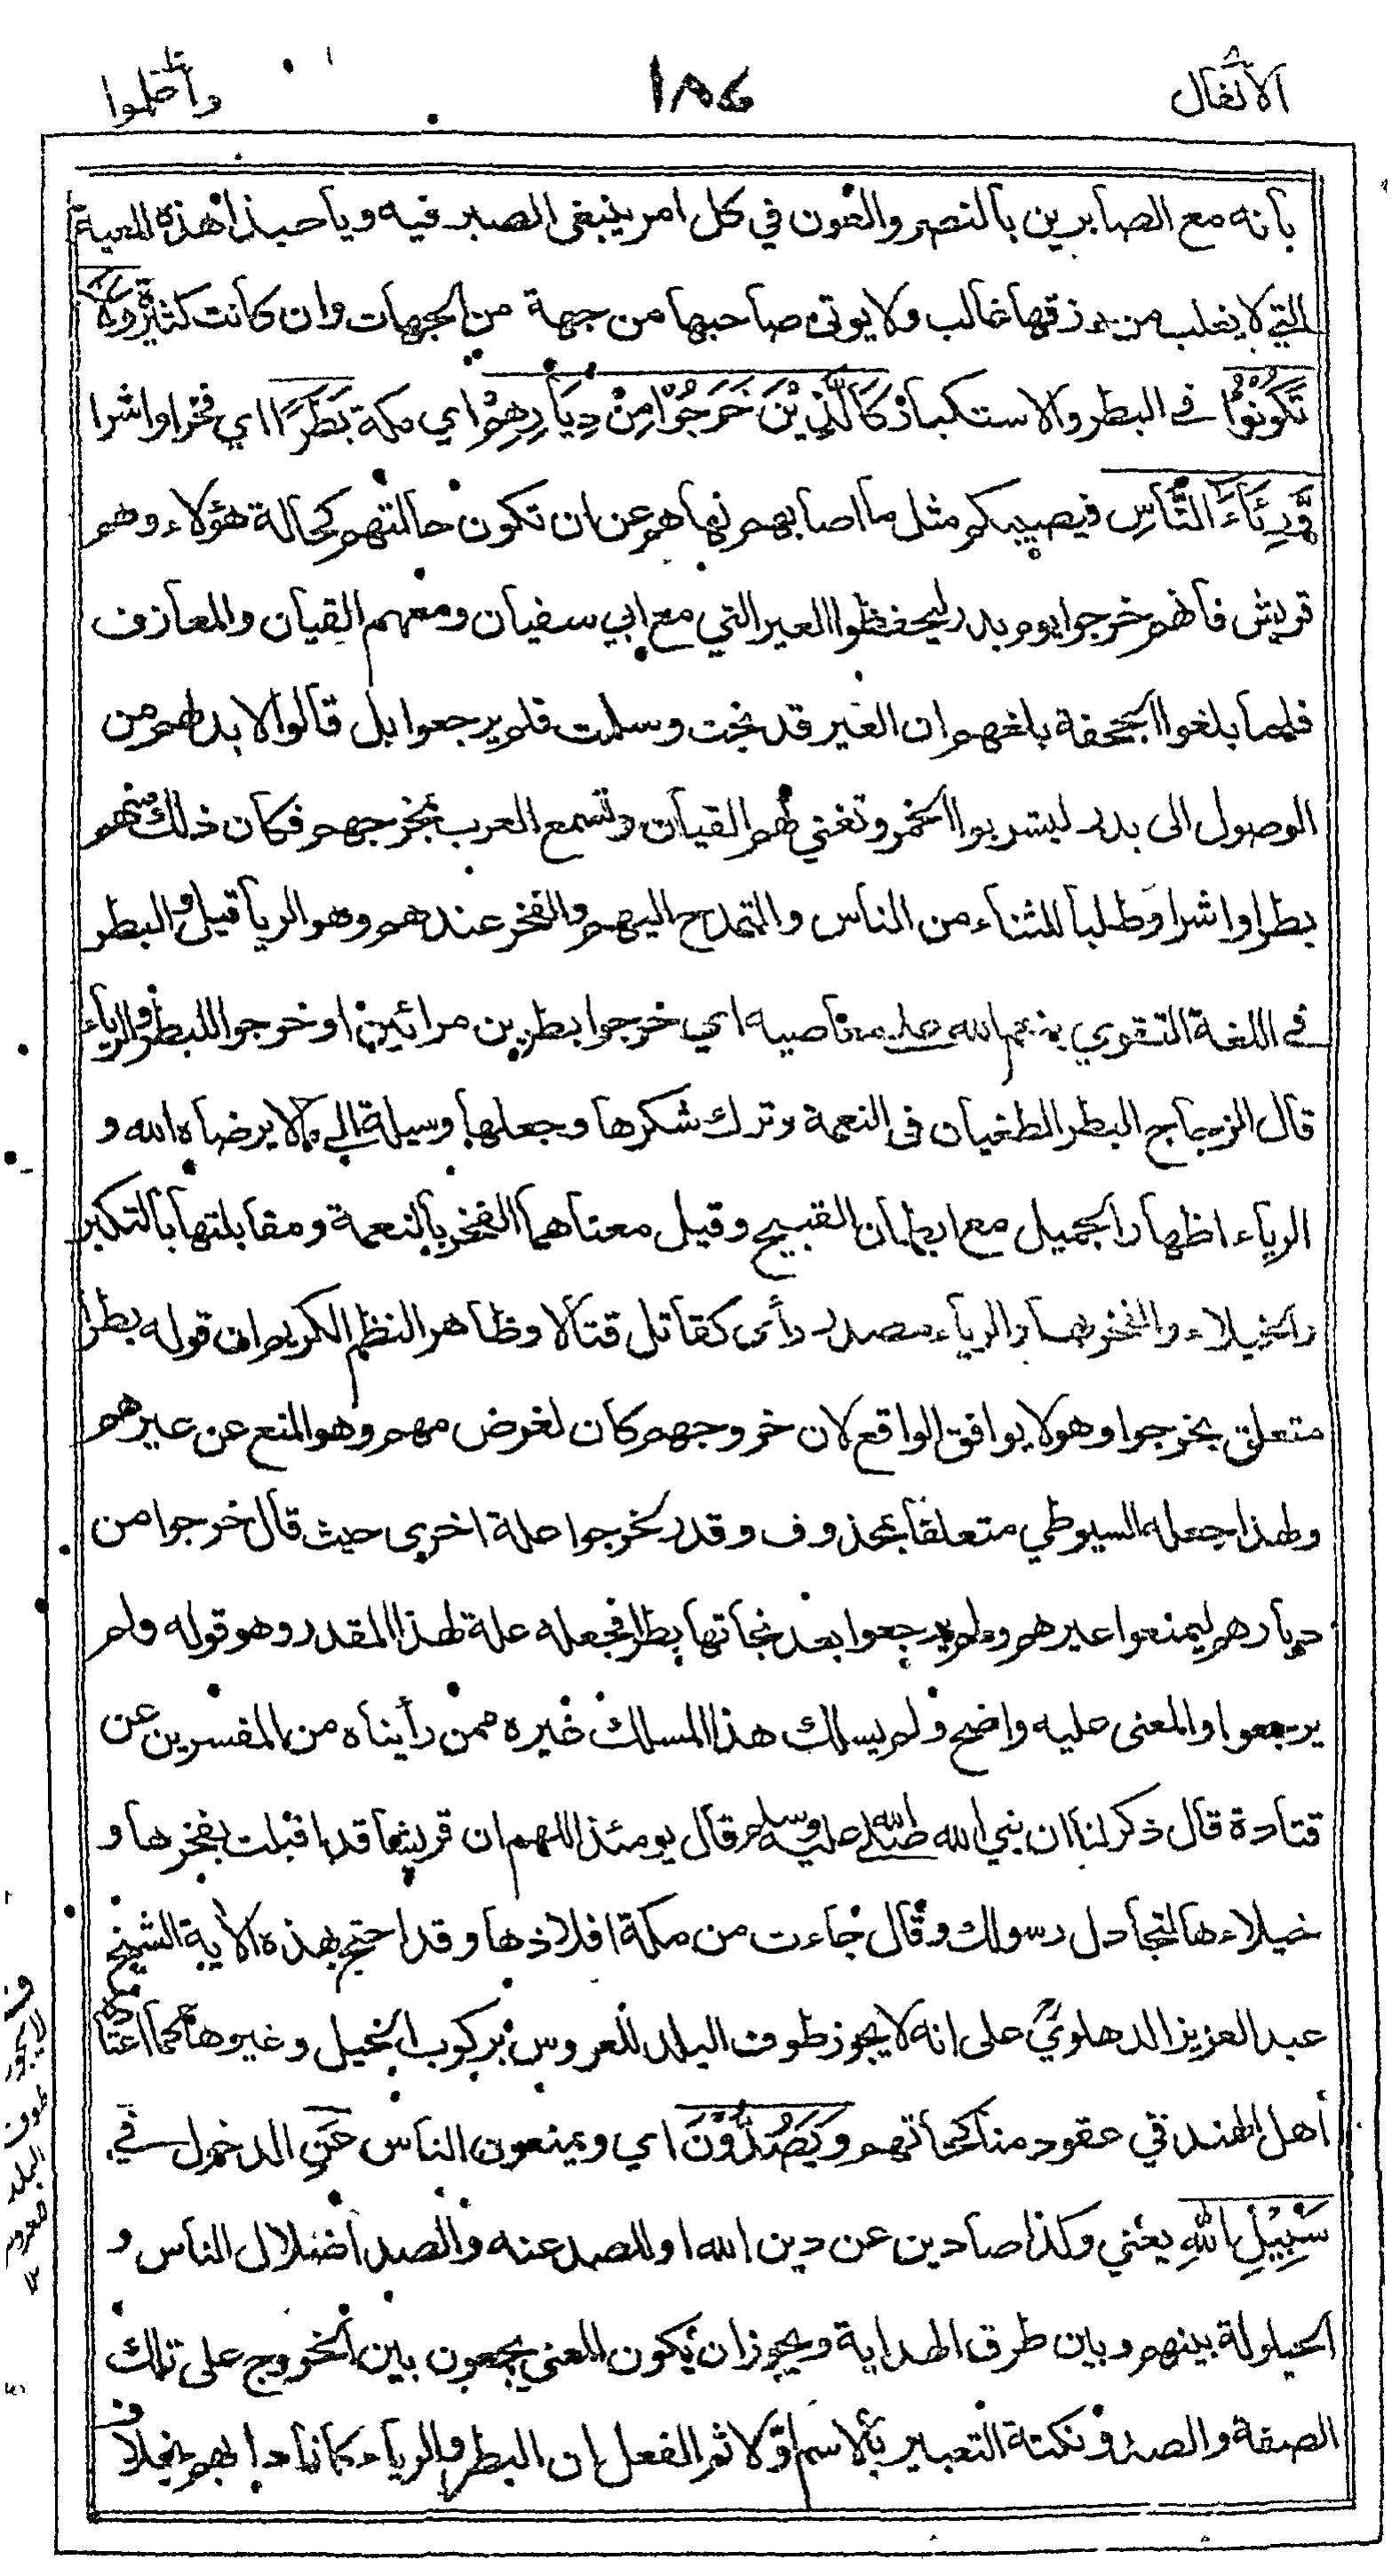 الانفال ١٨٤ واعلموا
بانه مع الصابرين بالنصر والعون في كل امر ينبغي الصبر فيه ويا حبذا هذه المعية
التي لا يغلب من رزقها غالب ولا يوتى صاحبها من جهة من الجهات وان كانت كثيرة وَلَا
تَكُوْنُوْا في البطر والاستكبار كَالَّذِيْنَ خَرَجُوْا مِنْ دِيَارِهِمْ اي مكة بَطَرًا اي فخرا واشرا
وَّرِئَاءَ النَّاسِ فيصيبكم مثل ما اصابهم نهاهم عن ان تكون حالتهم كحالة هؤلاء وهم
قريش فانهم خرجوا يوم بدر ليحفظوا العير التي مع ابي سفيان ومعهم القيان والمعازف
فلما بلغوا الجحفة بلغهم ان العير قد نجت وسلمت فلم يرجعوا بل قالوا لا بد لهم من
الوصول الى بدر ليشربوا الخمر وتغني لهم القيان وتسمع العرب بمخرجهم فكان ذلك منهم
بطرا واشرا وطلبا للثناء من الناس والتمدح اليهم والفخر عندهم وهو الريا قيل والبطر
في اللغة التقوي بنعم الله على معاصيه اي خرجوا بطرين مرائين او خرجوا للبطر والرياء
قال الزجاج البطر الطغيان في النعمة وترك شكرها وجعلها وسيلة الى ما لا يرضاه الله و
الرياء اظهار الجميل مع ابطان القبيح وقيل معناهما الفخر بالنعمة ومقابلتها بالتكبر
والخيلاء والفخر بها والرياء مصدر رأى كقاتل قتالا وظاهر النظم الكريم ان قوله بطرا
متعلق بخرجوا وهو لا يوافق الواقع لان خروجهم كان لغرض مهم وهو المنع عن عيرهم
ولهذا جعله السيوطي متعلقا بمحذوف وقدر لخرجوا علة اخرى حيث قال خرجوا من
ديارهم ليمنعوا عيرهم ولم يرجعوا بعد نجاتها بطرا فجعله علة لهذا المقدر وهو قوله ولم
يرجعوا والمعنى عليه واضح ولم يسلك هذا المسلك غيره ممن رأيناه من المفسرين عن
قتادة قال ذكر لنا ان نبي الله صلى الله عليه وسلم قال يومئذ اللهم ان قريشا قد اقبلت بفخرها و
خيلاءها لتجادل رسولك وقال جاءت من مكة افلاذها وقد احتج بهذه الاية الشيخ
عبد العزيز الدهلوي على انه لا يجوز طوف البلد للعروس بركوب الخيل وغيرها كما اعتاده
أهل الهند في عقود مناكحاتهم وَيَصُدُّوْنَ اي ويمنعون الناس عَنْ الدخول في
سَبِيْلِ اللّٰهِ يعني وكذا صادين عن دين الله او للصد عنه والصد اضلال الناس و
الحيلولة بينهم وبين طرق الهداية ويجوز ان يكون المعنى يجمعون بين الخروج على تلك
الصفة والصد ونكتة التعبير بالاسم اولا ثم الفعل ان البطر والرياء كانا دابهم بخلاف
ف
لا يجوز
طوف
البلد